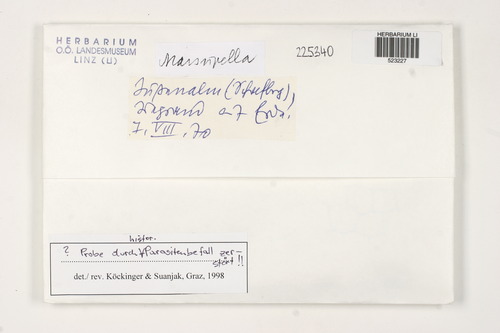 HERBARIUM
O.Ö. LANDESMUSEUM
LINZ (LI)
Marsupella
225340
HERBARIUM LI
523227
Wegrand a/ Erde.
7. VIII. 70
histor.
? Probe durch Parasitenbefall zer-
stört !!
det./ rev. Köckinger & Suanjak, Graz, 1998